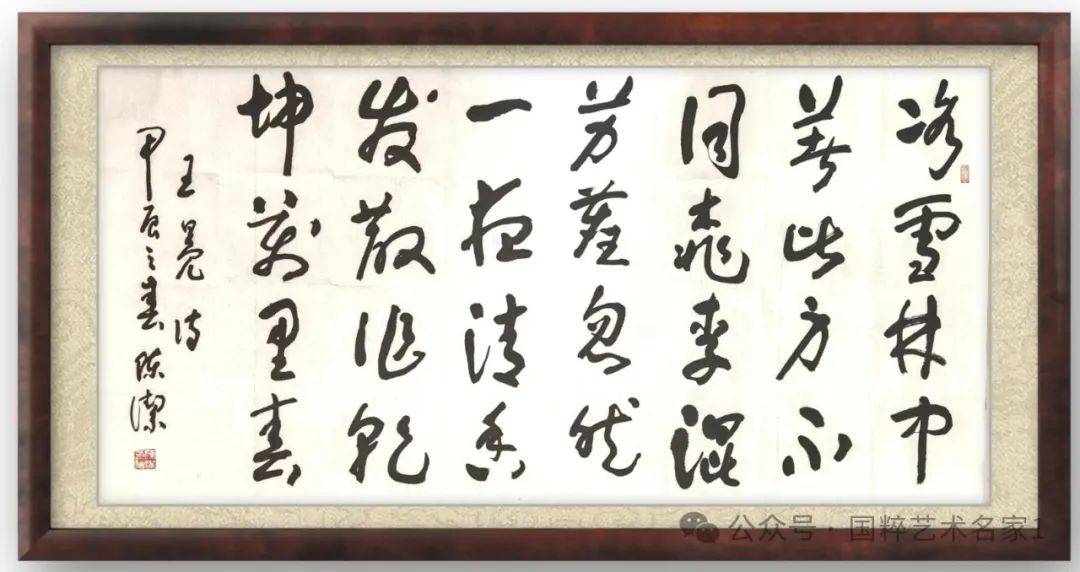 冰雪林中
著此身不
同桃李混
芳塵忽然
一夜清香
发散作乾
坤萬里春
王冕诗
甲辰之春 陈潔
公众号 · 国粹艺术名家1